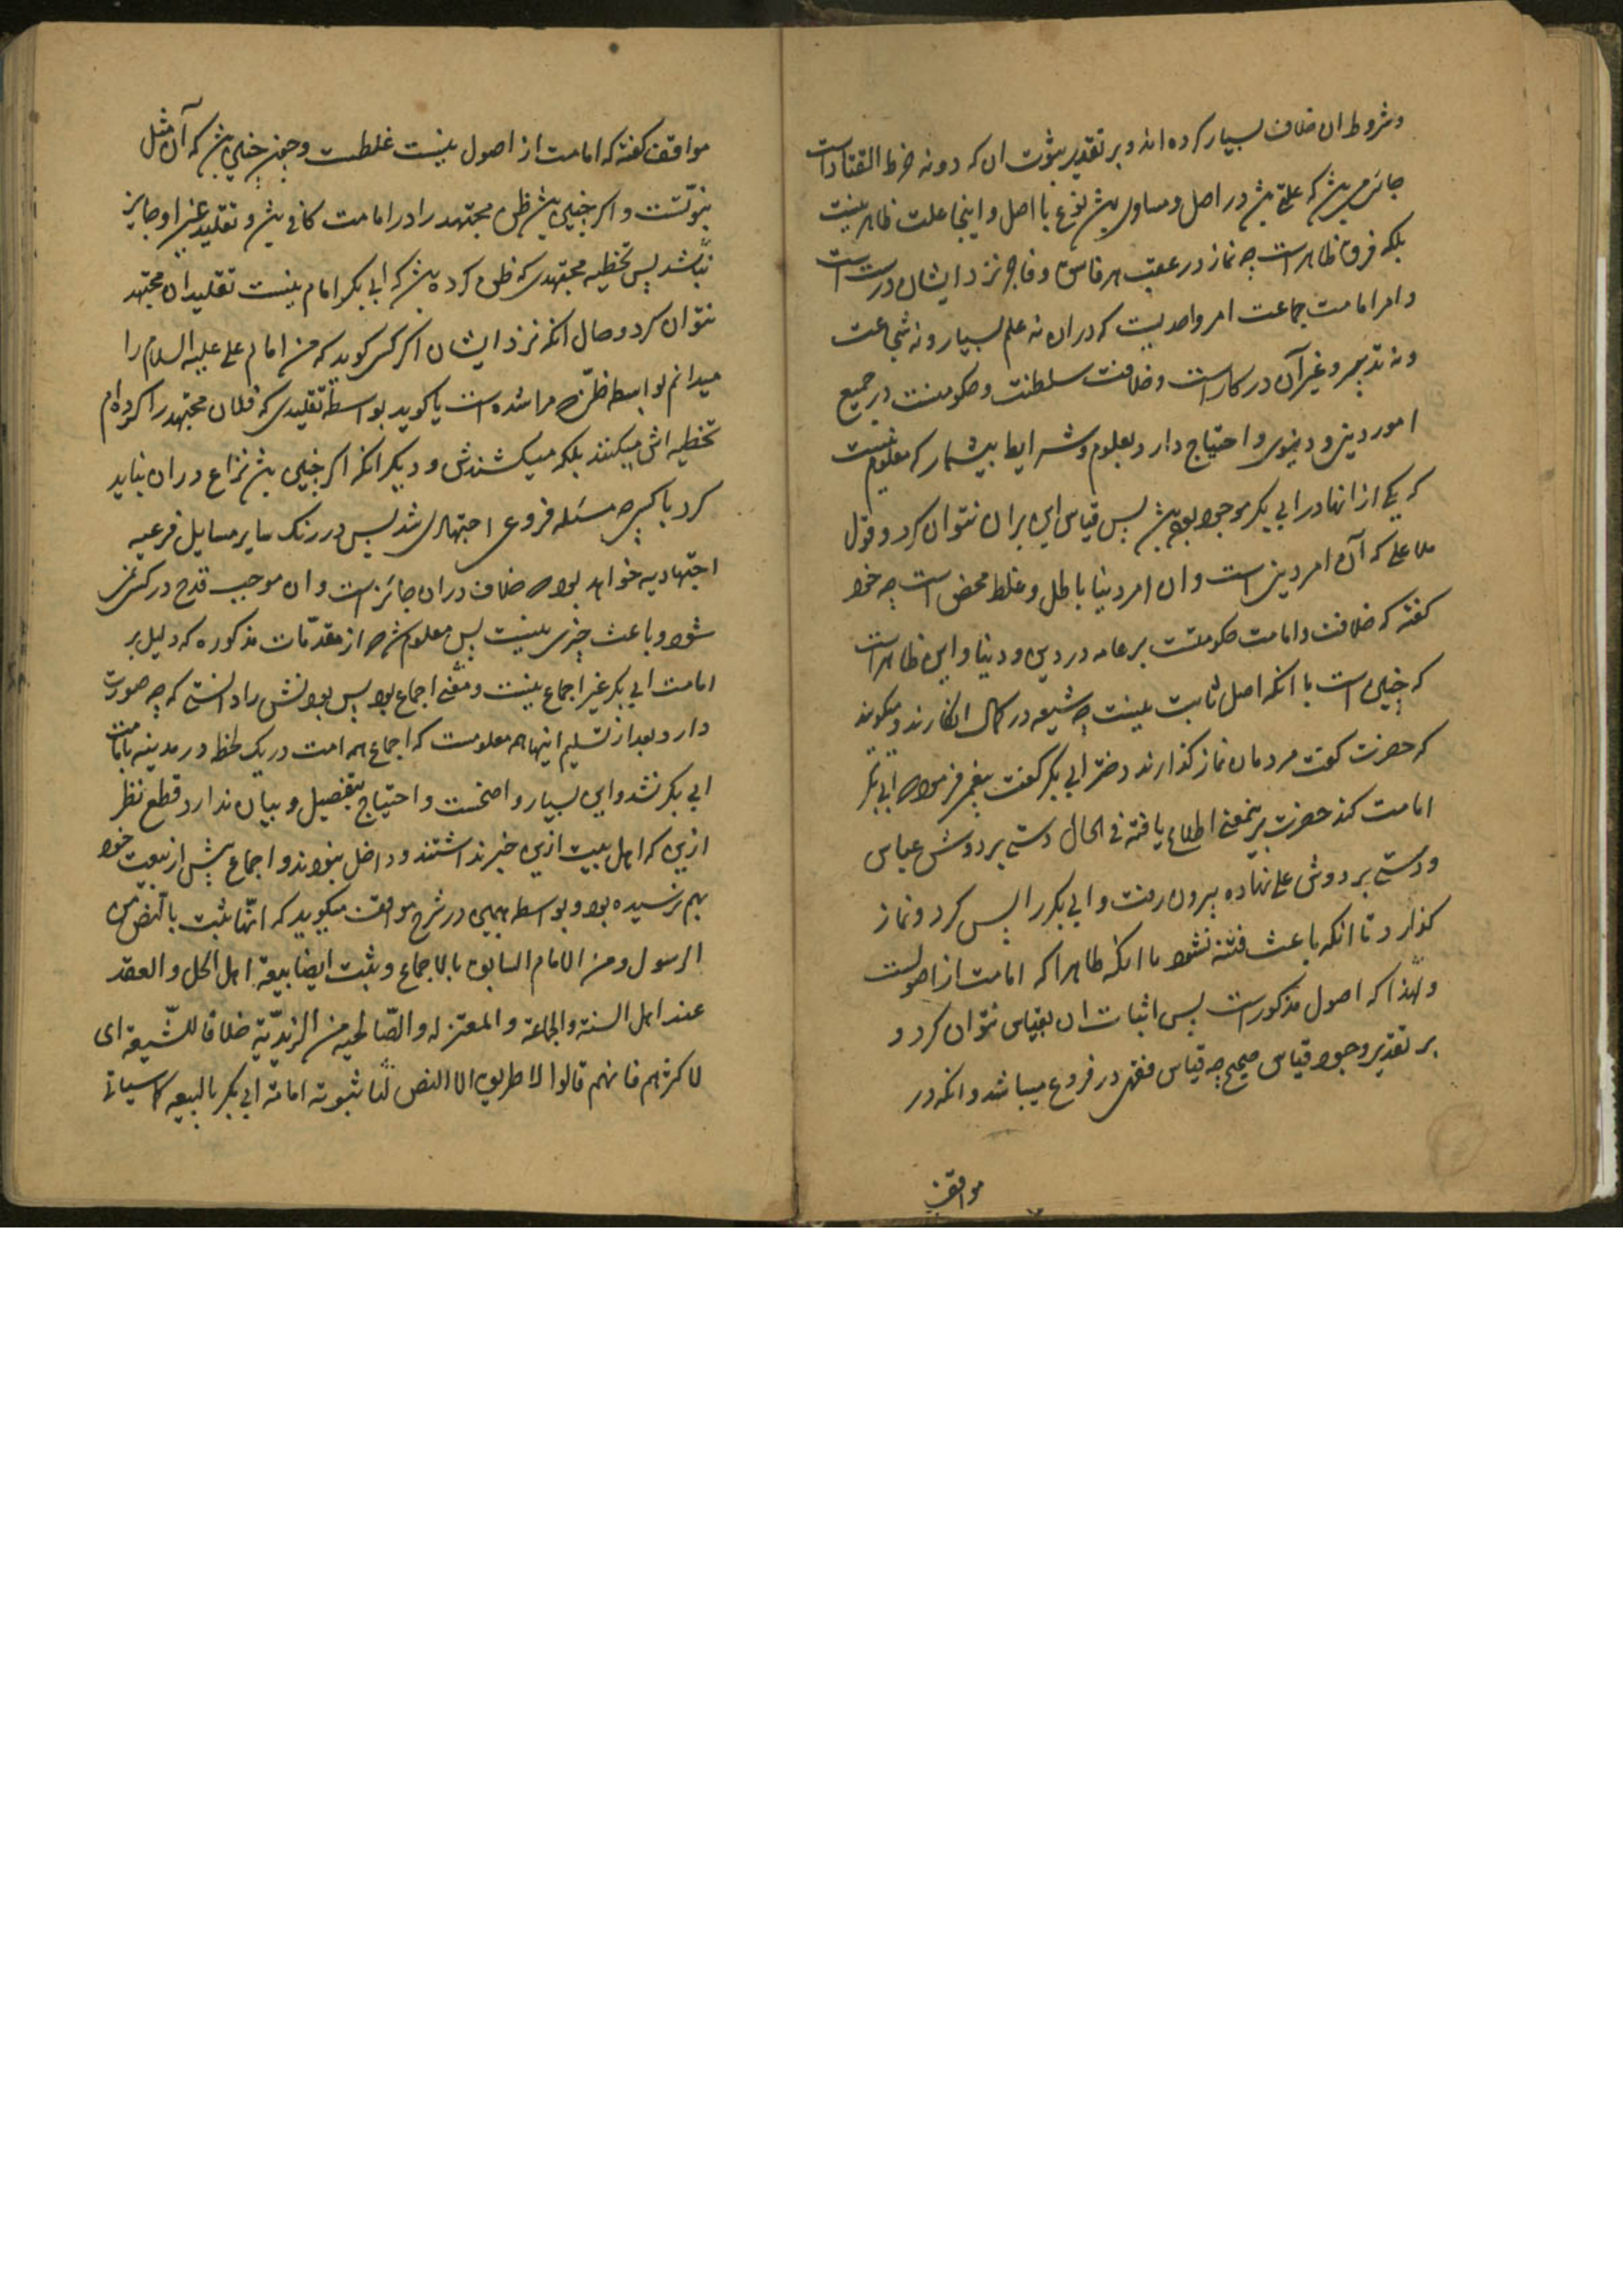 وشروط ان خلاف بسیار کرده اند و بر تقدیر ثبوت ان که دونه خرط القتاد است
جائی میباشد که علتی باشد در اصل و مساوی باشد فرع با اصل و اینجا علت ظاهر نیست
بلکه فرق ظاهر است چه نماز در عقب هر فاسق و فاجر نزد ایشان درست است
و امر امامت جماعت امر واحدیست که دران نه علم بسیار و نه شجاعت
و نه تدبیر و غیر آن در کار است و خلافت سلطنت و حکومتست در جمیع
امور دینی و دنیوی و احتیاج دارد بعلوم و شرایط بیشمار که معلوم نیست
که یکی از انها در ابی بکر موجود بوده باشد پس قیاس این بران نتوان کرد و قول
ملا علی که آن امر دینی است و ان امر دنیا باطل و غلط محض است چه خود
کفته که خلافت و امامت حکومتست بر عامه در دین و دنیا و این ظاهر است
که چنین است با انکه اصل ثابت نیست چه شیعه در کمال انکارند و میکویند
که حضرت کفت مردمان نماز کذارند دختر ابی بکر کفت پیغمبر فرموده ابی بکر
امامت کند حضرت برینمعنی اطلاع یافته فی الحال دستی بر دوش عباس
و دستی بر دوش علی نهاده بیرون رفت و ابی بکر را پس کرد و نماز
کذارد تا انکه باعث فتنه نشود با انکه ظاهرا که امامت از اصولست
و لهذا که اصول مذکور است پس اثبات ان بقیاس نتوان کرد و
بر تقدیر وجود قیاس صحیح چه قیاس فقهی در فروع میباشد و انکه در
مواقف
مواقف کفته که امامت از اصول نیست غلطست و چون چنین باشد که آن مثل
نبوتست و اکر چنین باشد ظن مجتهد را در امامت کافی باشد و تقلید غیر او جایز
نباشد پس تخطیه مجتهدی که ظن کرده باشد که ابی بکر امام نیست تقلید ان مجتهد
نتوان کرد و حال انکه نزد ایشان اکر کسی کوید که من امام علی علیه السلام را
میدانم بواسطه ظنی که مرا شده است یا کوید بواسطه تقلیدی که فلان مجتهد را کرده ام
تخطیه اش میکنند بلکه میکشندش و دیکر انکه اکر چنین باشد نزاع دران نباید
کرد با کسی چه مسئله فروعی اجتهادی شد پس در رنک سایر مسایل فرعیه
اجتهادیه خواهد بود چه خلاف دران جائز است و ان موجب قدح در کسی نمی
شود و باعث چیزی نیست پس معلوم شد از مقدمات مذکوره که دلیل بر
امامت ابی بکر غیر اجماع نیست و معنی اجماع بود پس بودنش را دانستی که چه صورت
دارد و بعد از تسلیم اینها همه معلومست که اجماع همه امت در یک لحظه در مدینه بامامت
ابی بکر نشد و این بسیار واضحست و احتیاج بتفصیل و بیان ندارد قطع نظر
ازین که اهل بیت ازین خبر نداشتند و داخل نبودند و اجماع پیش از بیعت خود
بهم نرسیده بود و بواسطه همین در شرح مواقف میکوید که انها تثبت بالنص من
الرسول و من الامام السابق بالاجماع و تثبت ایضا ببیعة اهل الحل و العقد
عند اهل السنة و الجماعة و المعتزله و الصالحیه من الزیدیة خلافا للشیعة ای
لاکثرهم فانهم قالوا لا طریق الا النص لنا ثبوت امامة ابی بکر بالبیعه کما سیاتی